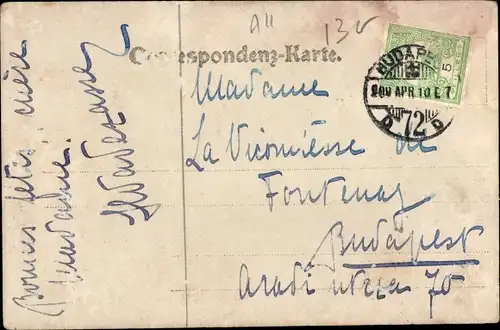 Correspondenz-Karte.
Madame
La Vicomtesse de
Fontenay
Budapest
Aradi utcza 70
Bonnes fêtes chère
Madame.
BUDAPEST
909 APR. 10 E.7
72
5